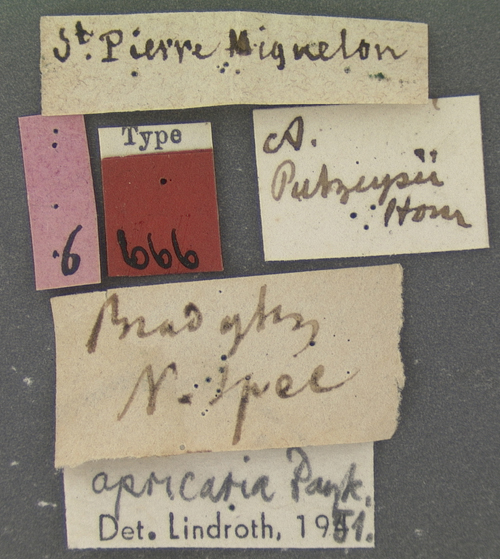 St. Pierre Miquelon
Type
6
666
A.
Putzeysii
Horn
Bradytus
N. Spec
apricaria Payk.
Det. Lindroth, 1951.